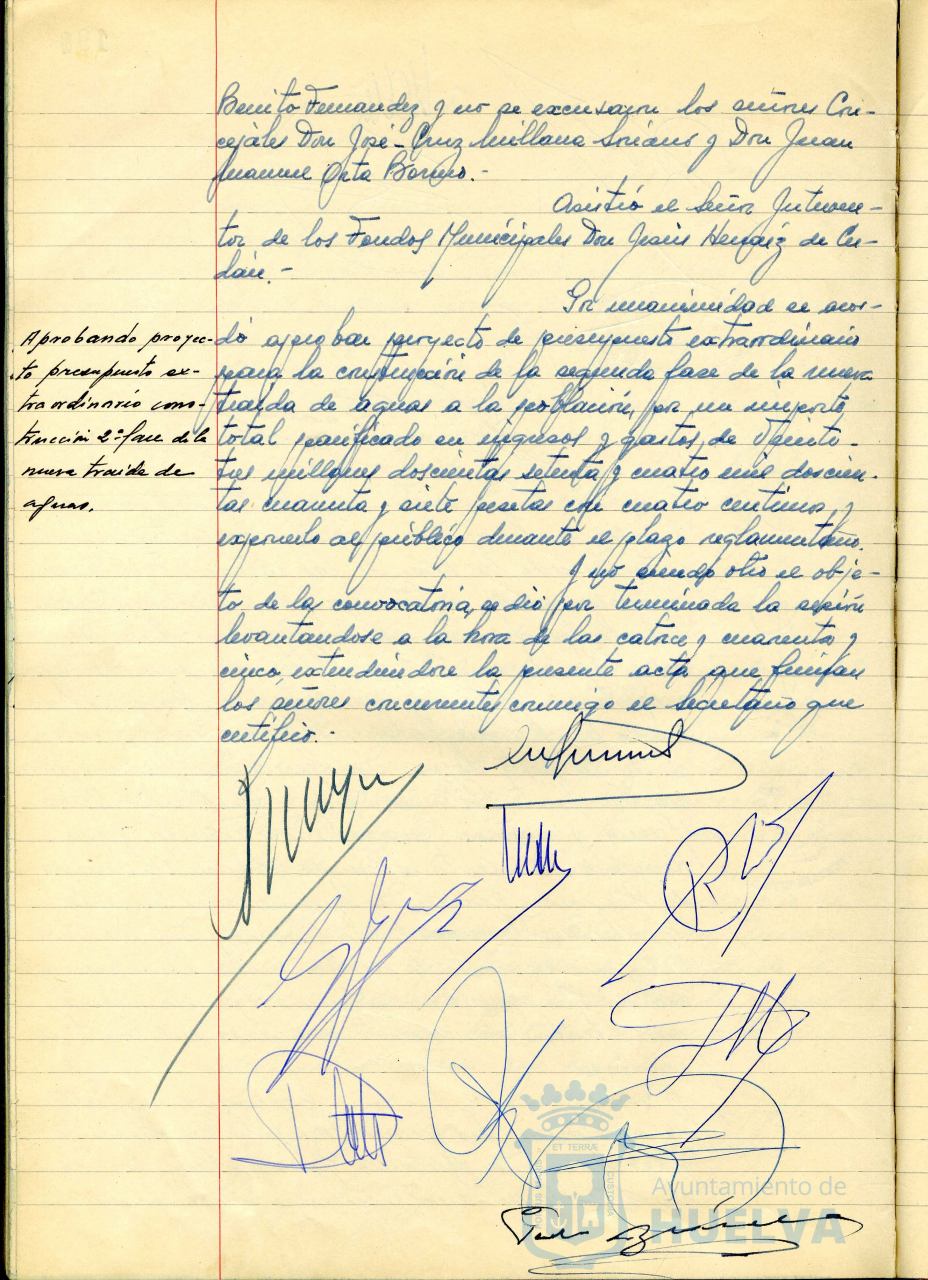 Benito Fernandez y no se excusaron los señores Con-
cejales Don José-Cruz Millana Soriano y Don Juan
Manuel Orta Borrero.-
Asistió el Señor Interven-
tor de los Fondos Municipales Don Jesús Hernáiz de
Por unanimidad se acor-
Aprobando proyec-
to presupuesto ex-
traordinario cons-
trucción 2ª fase de la
nueva traida de
aguas.
dó aprobar proyecto de presupuesto extraordinario
para la construcción de la segunda fase de la nueva
traida de aguas a la población, por un importe,
total panificado en ingresos y gastos, de Veinti-
tres millones doscientas setenta y cuatro mil doscien-
tas cuarenta y siete pesetas con cuatro centimos, y
exponerlo al público durante el plazo reglamentario.
Y no siendo otro el obje-
to de la convocatoria, se dió por terminada la sesión
levantandose a la hora de las catorce y cuarenta y
cinco, extendiendose la presente acta, que firman
los señores concurrentes conmigo el Secretario que
certifico.-
ET TERRÆ
Ayuntamiento de
HUELVA